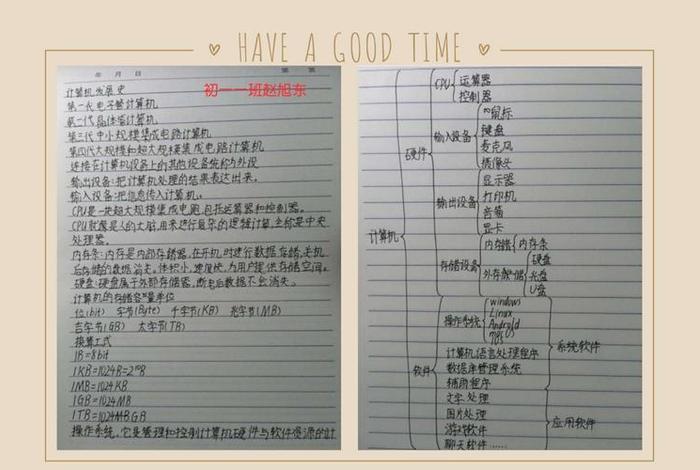 HAVE A GOOD TIME
年 月 日
初一一班赵旭东
计算机发展史
第一代电子管计算机
第二代晶体管计算机
第三代中小规模集成电路计算机
第四代大规模和超大规模集成电路计算机
连接在计算机设备上的其他设备统称为外设
输出设备:把计算机处理的结果表达出来。
输入设备:把信息传入计算机。
CPU是一块超大规模集成电路,包括运算器和控制器。
CPU就像是人的大脑,用来进行复杂的逻辑计算,全称是中央
处理器。
内存条:内存是内部存储器,在开机时进行数据存储,关机
后存储的数据消失。体积小,速度快,为用户提供存储空间。
硬盘:硬盘属于外部存储器,断电后数据不会消失。
计算机的存储容量单位
位(bit) 字节(Byte) 千字节(KB) 兆字节(MB)
吉字节(GB) 太字节(TB)
换算公式
1B=8bit
1KB=1024B=2¹⁰B
1MB=1024KB
1GB=1024MB
1TB=1024GB
操作系统,它是管理和控制计算机硬件与软件资源的计
计算机
硬件
CPU
运算器
控制器
输入设备
鼠标
键盘
麦克风
摄像头
输出设备
显示器
打印机
音箱
显卡
存储设备
内存储
内存条
外存储
硬盘
光盘
U盘
软件
操作系统
windows
Linux
Android
macOS
iOS
计算机语言处理程序
数据库管理系统
辅助程序
系统软件
文字处理
图片处理
游戏软件
聊天软件……
应用软件